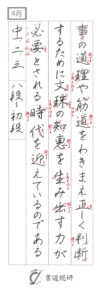 4月
事の道理や筋道をわきまえ正しく判断
するために文殊の知恵を生み出す力が
必要とされる時代を迎えているのである
中一二三 八段~初段
書道総研